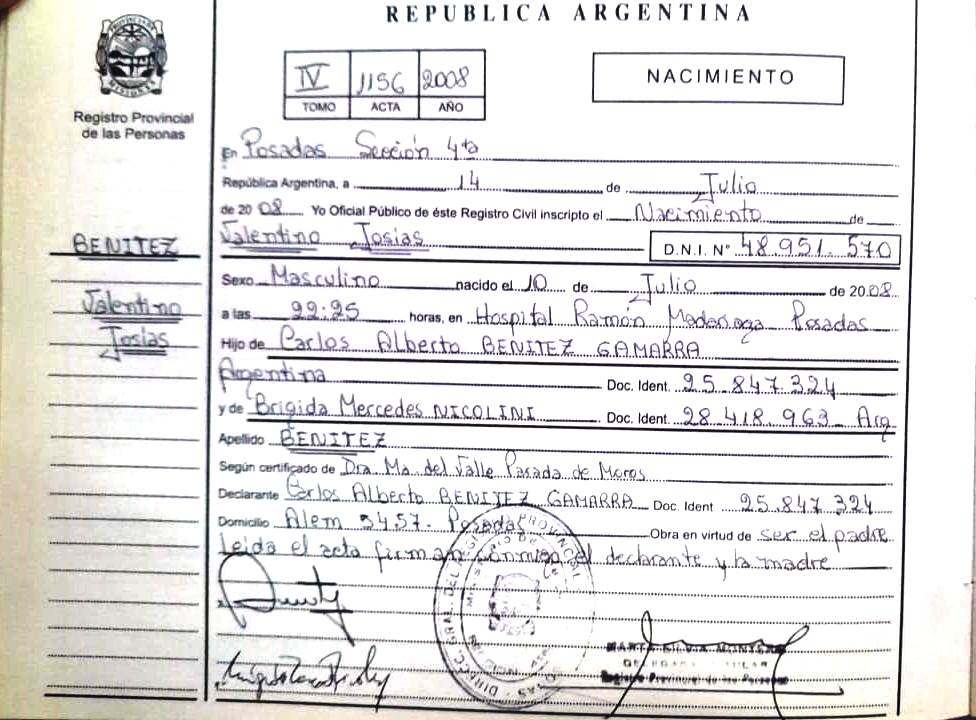 REPUBLICA ARGENTINA
PROVINCIA DE MISIONES
Registro Provincial
de las Personas
IV 1156 2008
TOMO ACTA AÑO
NACIMIENTO
En Posadas Sección 4ta
República Argentina, a 14 de Julio
de 2008 Yo Oficial Público de éste Registro Civil inscripto el Nacimiento de
BENITEZ
Valentino Josias
Valentino Josias D.N.I. N° 48.951.570
Sexo Masculino nacido el 10 de Julio de 2008
a las 22:25 horas, en Hospital Ramón Madariaga Posadas
Hijo de Carlos Alberto BENITEZ GAMARRA
Argentina Doc. Ident. 25.847.324
y de Brigida Mercedes NICOLINI Doc. Ident. 28.418.963 Arg
Apellido BENITEZ
Según certificado de Dra. Ma. del Valle Pasada de Moros
Declarante Carlos Alberto BENITEZ GAMARRA Doc. Ident 25.847.324
Domicilio Alem 3457. Posadas Obra en virtud de ser el padre
Leida el acta firman conmigo el declarante y la madre
MARTA SILVIA
Registro Provincial de las Personas